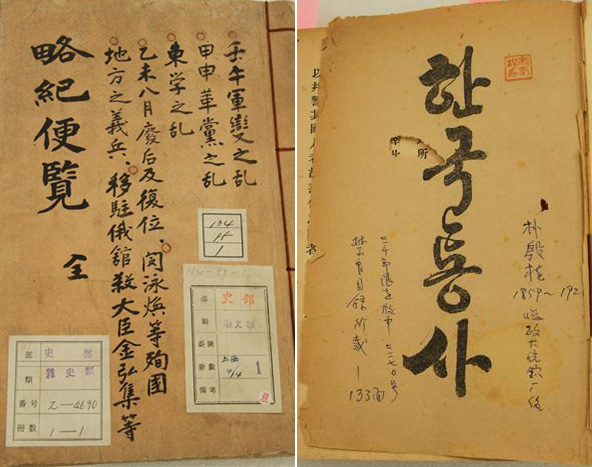 壬午軍變之乱
甲申革黨之乱
東学之乱
乙未八月廢后及復位、閔泳煥等殉國
地方之義兵、移駐俄館殺大臣金弘集等
略紀便覽 全
134
1
部 史部
番號
冊數 1
備考
部 史部
類 雜史類
番号 2—4690
冊數 1—1
한국통사
所
朴殷植
1859~192
臨政大統領
133面